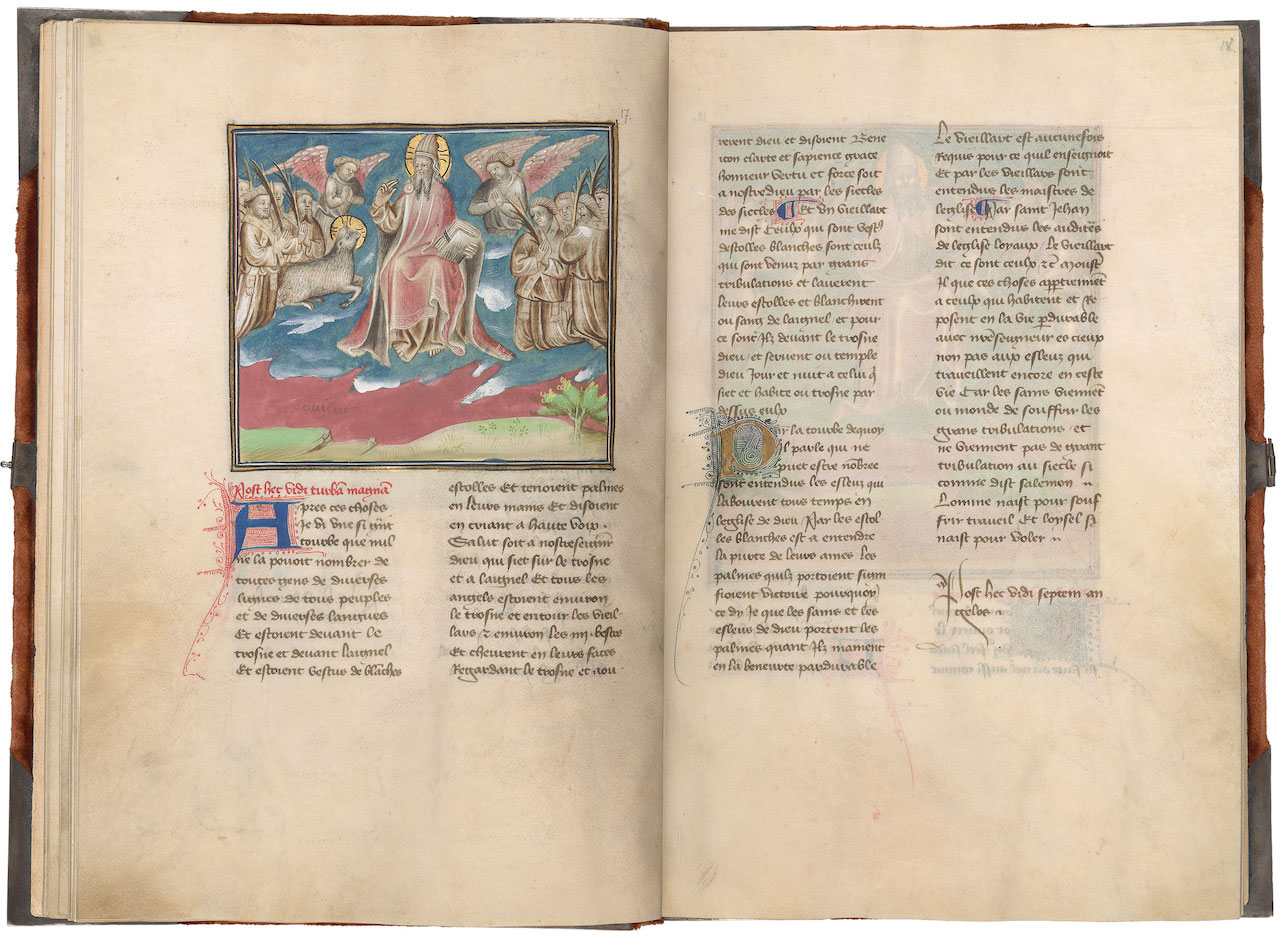 17.
couleur
Post hec vidi turbā magnā
Apres ces choses
Je vi vne si grāt
tourbe que nul
ne la pouoit nombrer de
toutes gens de diuerses
lignes de tous peuples
et de diuerses langues
Et estoient deuant le
trosne et deuant laignel
Et estoient vestus de blāches
estolles Et tenoient palmes
en leurs mains Et disoient
en criant a haulte voix
Salut soit a nostreseign
dieu qui siet sur le trosne
et a laignel Et tous les
angels estoient enuiron
le trosne et entour les vieil
lars ⁊ enuiron les iiij bestes
Et cheurent en leurs faces
Regardant le trosne et aou
18.
rerent dieu et disoient Bene
icon clarte et sapience grace
honneur vertu et force soit
a nostre dieu par les siecles
des siecles Et vn vieillart
me dist Ceulx qui sont vestꝰ
destolles blanches sont ceulx
qui sont venuz par grans
tribulations et lauerent
leurs estolles et blanchirent
ou sang de laignel et pour
ce sont Ilz deuant le trosne
dieu / et seruent ou temple
dieu Jour et nuit a celui q̄
siet et habite ou trosne par
dessus eulx
Par la tourbe dequoy
Il parle qui ne
puet estre nōbree
sont entendus les esleuz qui
labourent tous temps en
leglise de dieu Par les estol
les blanches est a entendre
la purte de leurs ames Les
palmes quilz portoient signi
fioient victoire pourquoy
ce dy Je que les sains et les
esleus de dieu portent les
palmes quant Ilz mainent
en la beneurte pardurable
Le vieillart est aucunefois
Requis pour ce quil enseignoit
Et par les vieillars sont
entendus les maistres de
leglise Par saint Jehan
sont entendus les audites
de leglise loyaux. Le vieillart
dit ce sont ceulx ⁊c̄ Moustr
Il que ces choses apptiennēt
a ceulx qui habitent et Re
posent en la vie p̄durable
auec nr̄eseigneur es cieux
non pas aux esleuz qui
trauaillent encore en ceste
vie Car les sains viennēt
ou monde de souffrir les
grans tribulations / et
ne viennent pas de grant
tribulation au siecle si
comme dist salemon
Lomme naist pour souf
frir trauail Et loysel si
naist pour voler
Post hec vidi septem an
gelos